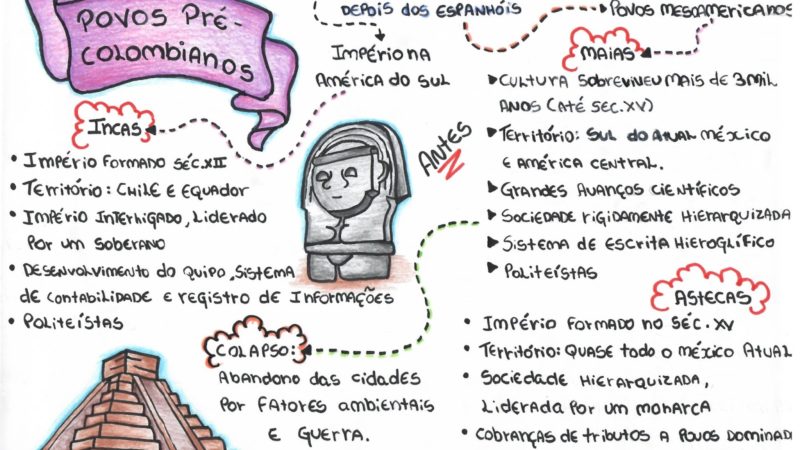 Povos Pré-
Colombianos
Depois dos espanhóis
Império na
América do Sul
Povos mesoamericanos
Incas
• Império formado séc. XII
• Território: Chile e Equador
• Império interligado, liderado
por um soberano
• Desenvolvimento do quipo, sistema
de contabilidade e registro de informações
• Politeístas
ANTES
Maias
▶ Cultura sobreviveu mais de 3 mil
anos (até séc. XV)
▶ Território: sul do atual México
e América Central.
▶ Grandes avanços científicos
▶ Sociedade rigidamente hierarquizada
▶ Sistema de escrita hieroglífico
▶ Politeístas
Colapso:
Abandono das cidades
por fatores ambientais
e guerra.
Astecas
• Império formado no séc. XV
• Território: quase todo o México atual
• Sociedade hierarquizada,
liderada por um monarca
• Cobranças de tributos a povos dominad